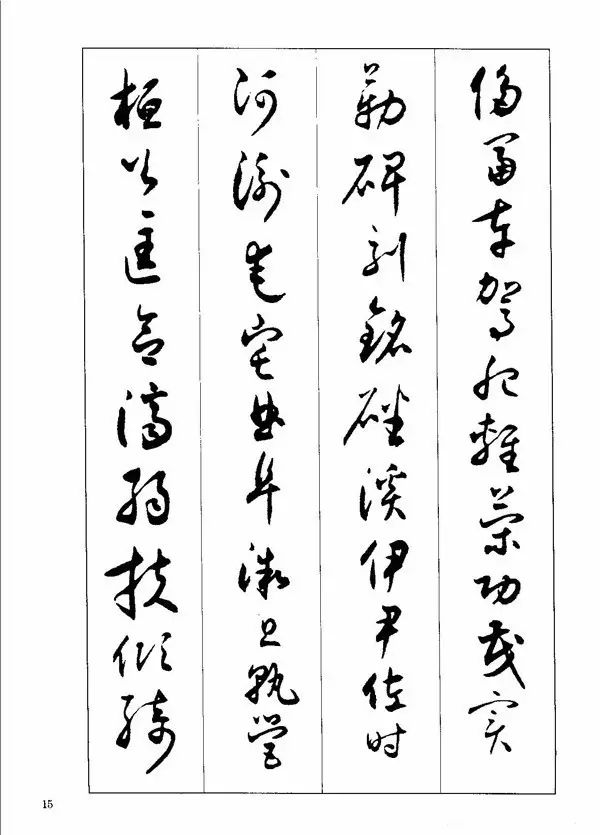 侈富車駕肥輕策功茂實
勒碑刻銘磻溪伊尹佐時
阿衡奄宅曲阜微旦孰營
桓公匡合濟弱扶傾綺
15